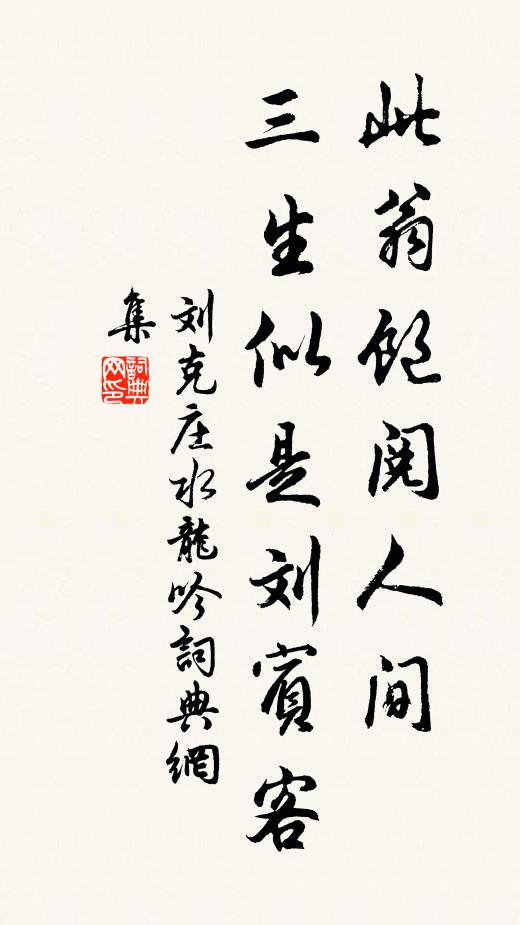 此翁饱阅人间
三生似是刘賓客
刘克庄水龍吟詞典網
集
詞典
网印